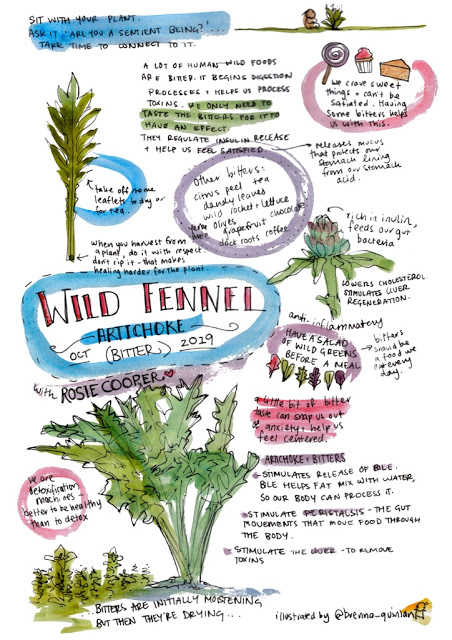 SIT WITH YOUR PLANT.
ASK IT 'ARE YOU A SENTIENT BEING?'...
TAKE TIME TO CONNECT TO IT.
A LOT OF HUMAN WILD FOODS
ARE BITTER. IT BEGINS DIGESTION
PROCESSES + HELPS US PROCESS
TOXINS. WE ONLY NEED TO
TASTE THE BITTERS FOR IT TO
HAVE AN EFFECT.
THEY REGULATE INSULIN RELEASE
+ HELP US FEEL SATISFIED
we crave sweet
things + can't be
satiated. Having
some bitters helps
us with this.
releases mucus
that protects our
stomach lining
from our stomach
acid.
Other bitters:
citrus peel tea
dandy leaves
wild rocket + lettuce
olives chocolate
grapefruit
dock roots coffee
take off some
leaflets to dry or
for tea.
when you harvest from
a plant, do it with respect.
don't rip it - that makes
healing harder for the plant.
rich in inulin,
feeds our gut
bacteria
LOWERS CHOLESTEROL
STIMULATES LIVER
REGENERATION.
WILD FENNEL
ARTICHOKE
OCT (BITTER) 2019
with ROSIE COOPER
anti-inflammatory
HAVE A SALAD
OF WILD GREENS
BEFORE A MEAL
bitters
should be
a food we
eat every
day.
a little bit of bitter
taste can snap us out
of anxiety + help us
feel centered.
ARTICHOKE + BITTERS
- STIMULATES RELEASE OF BILE.
BILE HELPS FAT MIX WITH WATER,
SO OUR BODY CAN PROCESS IT.
- STIMULATE PERISTALSIS - THE GUT
MOVEMENTS THAT MOVE FOOD THROUGH
THE BODY.
- STIMULATE THE LIVER - TO REMOVE
TOXINS
we are
detoxification
machines -
better to be healthy
than to detox
...BITTERS ARE INITIALLY MOISTENING
BUT THEN THEY'RE DRYING...
illustrated by @brenna_quinlan